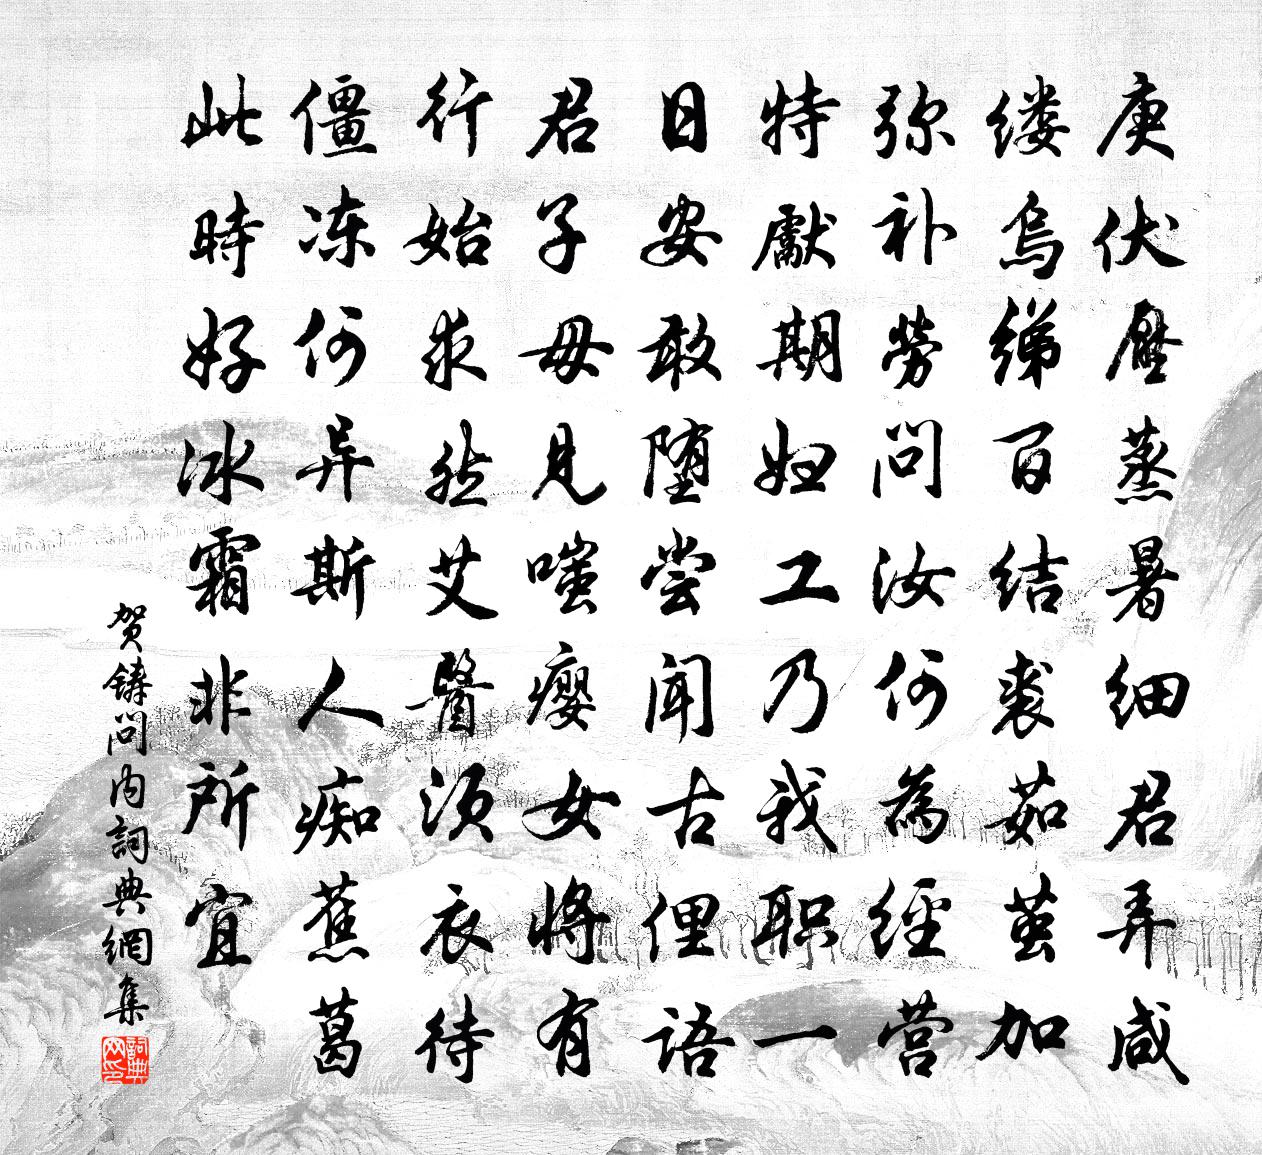 庚伏壓蒸暑细君弄咸
缕烏绨百结裘茹茧加
弥补劳問汝何為經营
特獻期妇工乃我职一
日安敢堕尝闻古俚语
君子毋见嗤瘿女將有
行始求然艾醫须衣待
僵冻何异斯人痴蕉葛
此時好冰霜非所宜
贺铸問内詞典網集
詞典网印